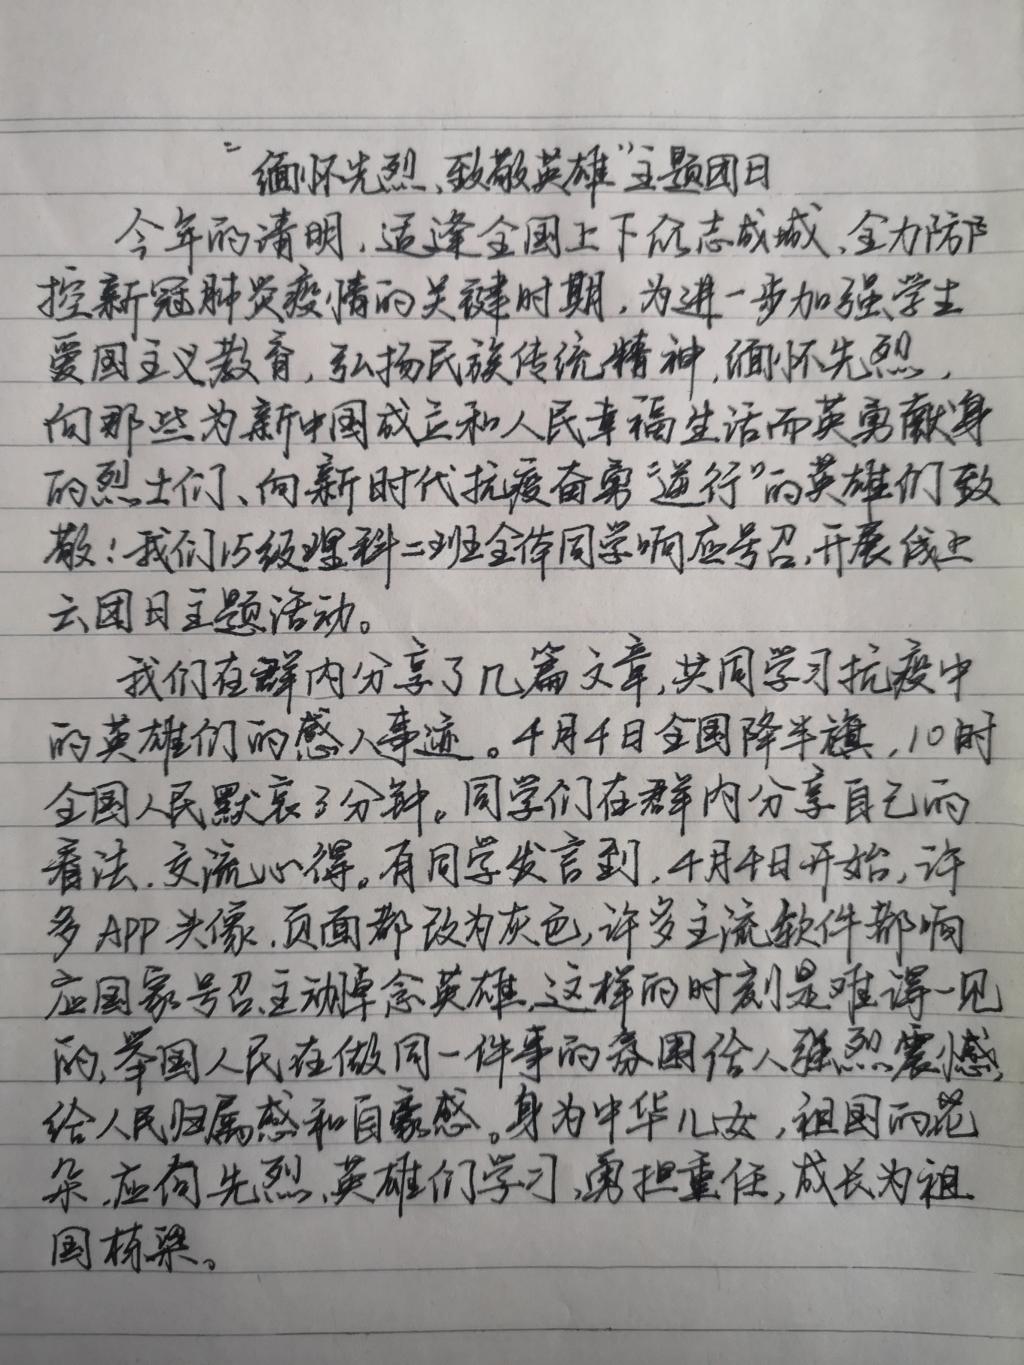 “缅怀先烈、致敬英雄”主题团日
今年的清明，适逢全国上下众志成城、全力防
控新冠肺炎疫情的关键时期，为进一步加强学生
爱国主义教育，弘扬民族传统精神，缅怀先烈，
向那些为新中国成立和人民幸福生活而英勇献身
的烈士们、向新时代抗疫奋勇“逆行”的英雄们致
敬！我们15级理科二班全体同学响应号召，开展线上
云团日主题活动。
我们在群内分享了几篇文章，共同学习抗疫中
的英雄们的感人事迹。4月4日全国降半旗，10时
全国人民默哀3分钟。同学们在群内分享自己的
看法，交流心得。有同学发言到，4月4日开始，许
多APP头像、页面都改为灰色，许多主流软件都响
应国家号召，主动悼念英雄，这样的时刻是难得一见
的，举国人民在做同一件事的氛围给人强烈震撼，
给人民归属感和自豪感。身为中华儿女，祖国的花
朵，应向先烈、英雄们学习，勇担重任，成长为祖
国栋梁。